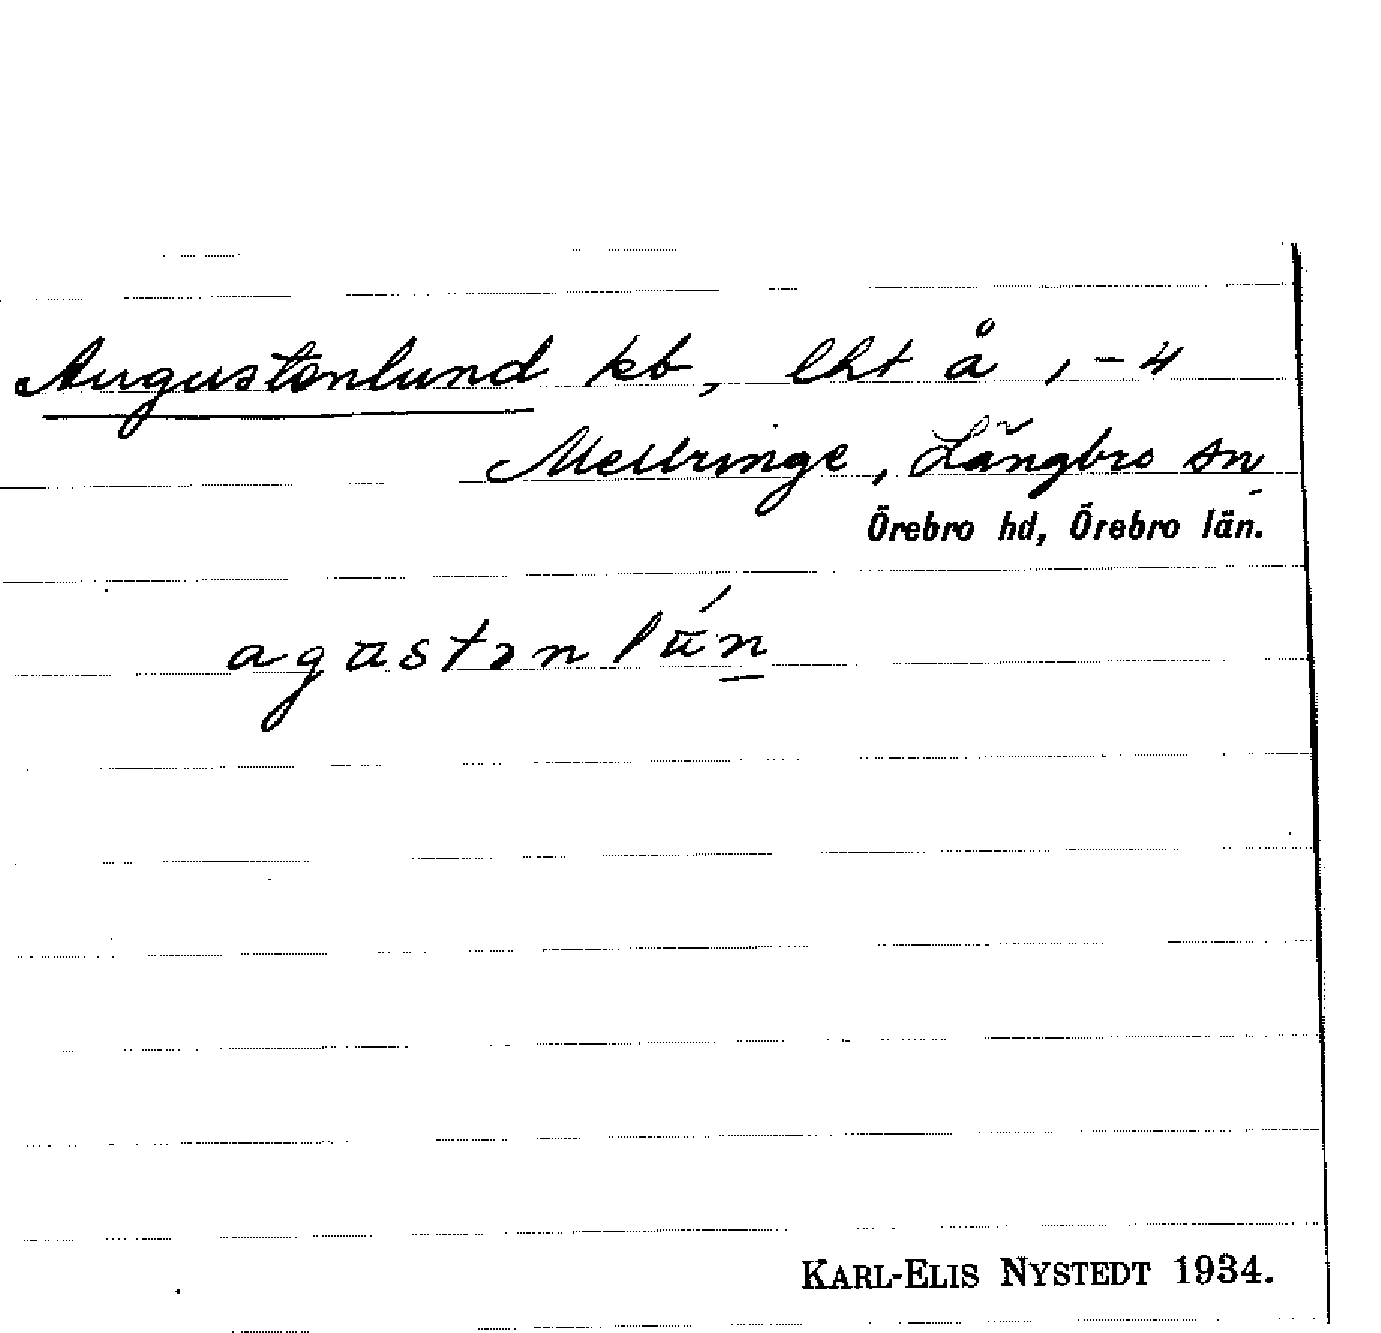 Augustenlund kb, lht å 1-4
Mellringe, Längbro sn
Örebro hd, Örebro län.
agastanlún
KARL-ELIS NYSTEDT 1934.